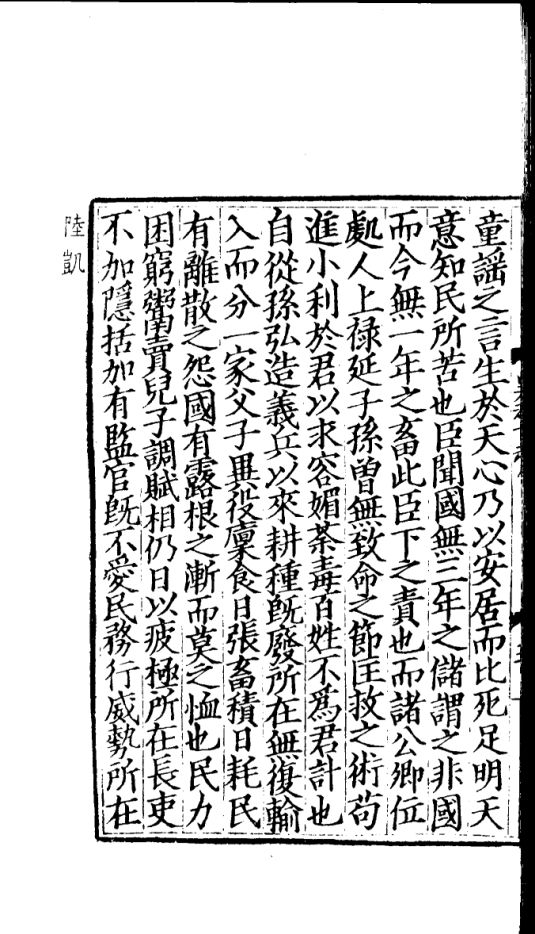 童謡之言生於天心乃以安居而比死足明天
意知民所苦也臣聞國無三年之儲謂之非國
而今無一年之畜此臣下之責也而諸公卿位
處人上禄延子孫曽無致命之節匡救之術茍
進小利於君以求容媚荼毒百姓不爲君計也
自從孫弘造義兵以來耕種旣廢所在無復輸
入而分一家父子異役廩食日張畜積日耗民
有離散之怨國有露根之漸而莫之恤也民力
困窮鬻賣兒子調賦相仍日以疲極所在長吏
不加隱括加有監官旣不愛民務行威勢所在
陸凱